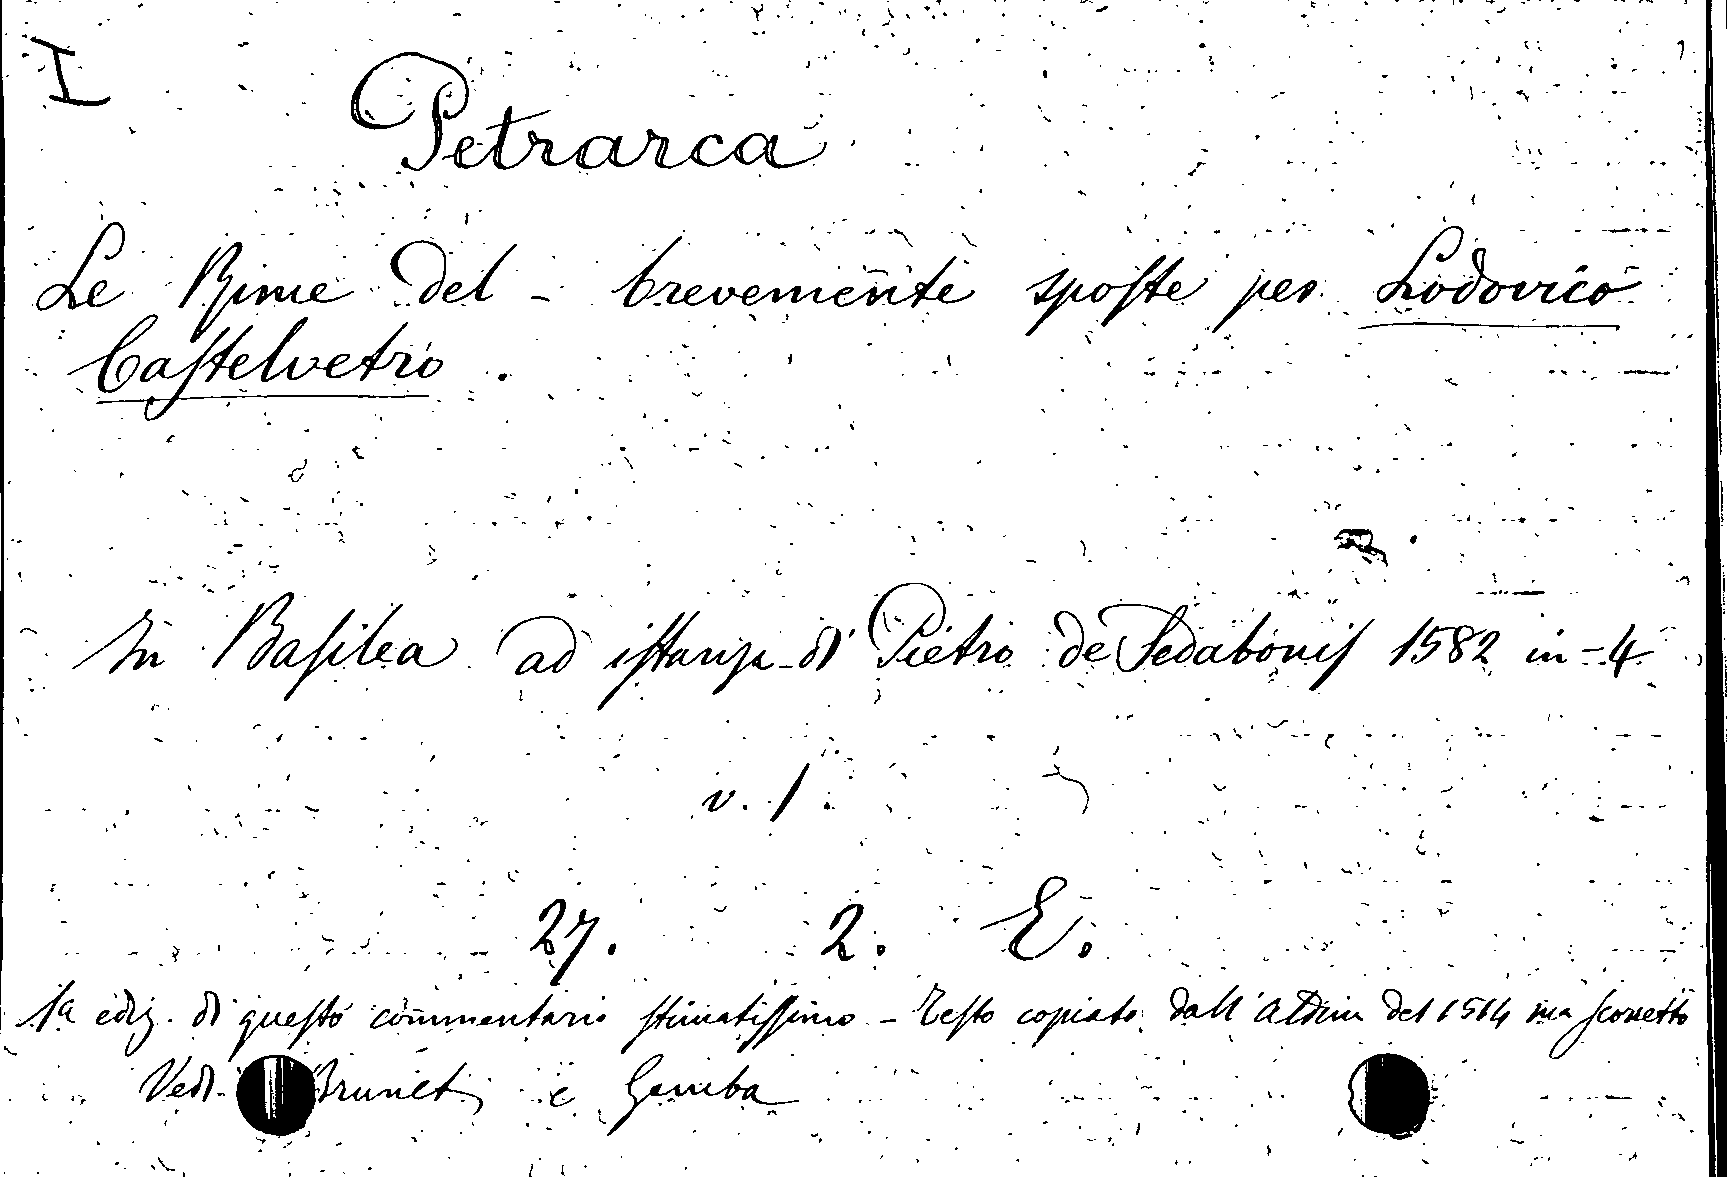 I
Petrarca
Le Rime del - brevemente sposte per Lodovico
Castelvetro.
In Basilea ad istanza di Pietro de Sedabonis 1582 in-4
v. 1.
27. 2. E.
1a ediz. di questo commentario stimatissimo - Testo copiato dall'Aldina del 1514 ma scorretto
Vedi Brunet e Gamba